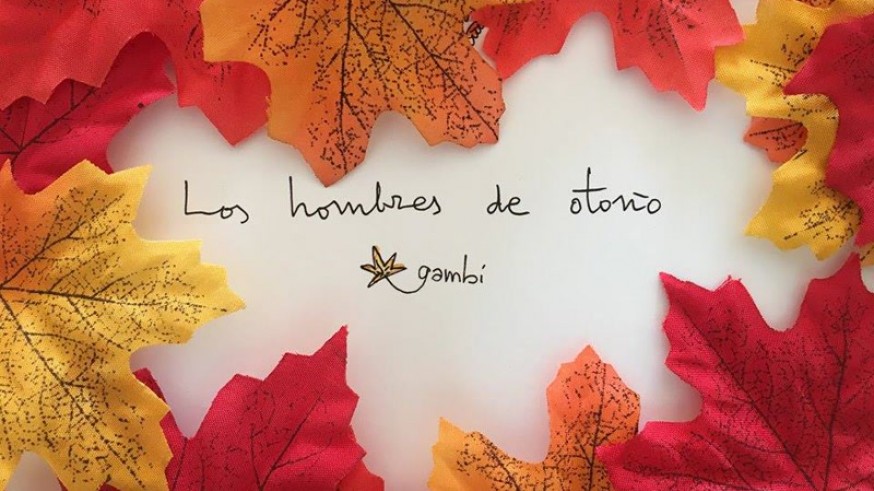 Los hombres de otoño
gambi